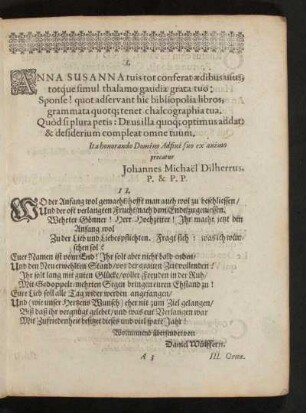 I.
ANNA SUSANNA tuis tot conferat ædibus usus,
totque simul thalamo gaudia grata tuo;
Sponse! quot adservant hic bibliopolia libros,
grammata quotq; tenet chalcographia tua.
Quòd si plura petis: Drusilla quoq; optimus addat,
& desiderium compleat omne tuum.
Ita honorando Domino Adfini suo ex animo
precatur
Johannes Michaël Dilherrus,
P. & P. P.
II.
WO der Anfang wol gemacht/ hofft man auch wol zu beschliessen/
Und der offt verlangten Frucht/ nach dem End/ zugeniessen.
Wehrter Gönner! Herr Hochzeiter! Ihr macht jetzt den
Anfang wol
Zu der Lieb und Liebespflichten. Fragt sich: was ich wün-
schen sol?
Euer Namen ist vom End! Ihr solt aber nicht bald enden/
Und den Neu-erwehlten Stand/ vor der grauen Zeit vollenden!
Ihr solt lang mit gutem Glücke/ voller Freuden in der Ruh/
Mit Gedoppelt-mehrten Segen bringen euren Ehstand zu!
Eure Lieb soll alle Tag wider werden angefangen/
Und/ wie unser Hertzens Wunsch/ eher nit zum Ziel gelangen/
Biß daß ihr vergnügt gelebet/ und was eur Verlangen war
Mit Zufriedenheit besitzet dieses und viel spate Jahr!
Wolmeinend übersendet von
Daniel Wülffern.
A 3
III. Cræa.